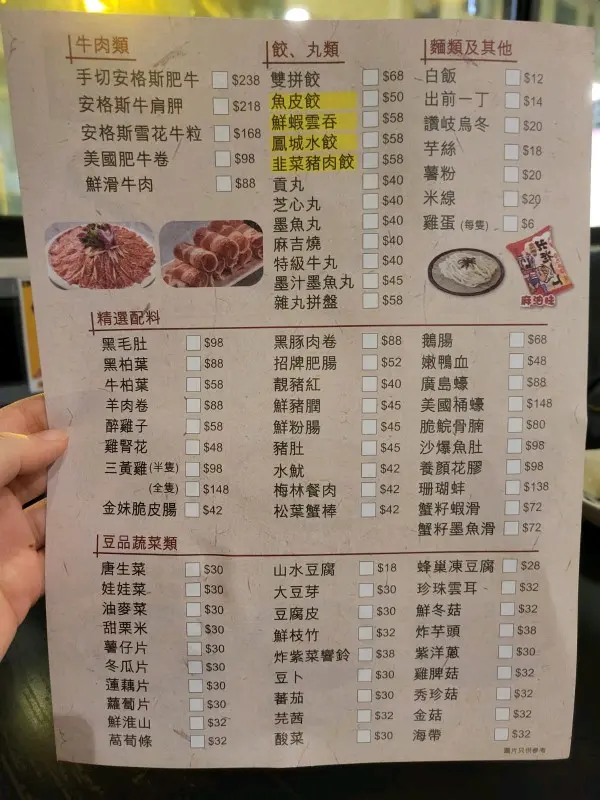 牛肉類
手切安格斯肥牛 $238
安格斯牛肩胛 $218
安格斯雪花牛粒 $168
美國肥牛卷 $98
鮮滑牛肉 $88
餃、丸類
雙拼餃 $68
魚皮餃 $50
鮮蝦雲吞 $58
鳳城水餃 $58
韭菜豬肉餃 $58
貢丸 $40
芝心丸 $40
墨魚丸 $40
麻吉燒 $40
特級牛丸 $40
墨汁墨魚丸 $45
雜丸拼盤 $58
麵類及其他
白飯 $12
出前一丁 $14
讚岐烏冬 $20
芋絲 $18
薯粉 $20
米線 $20
雞蛋 (每隻) $6
麻油味
精選配料
黑毛肚 $98
黑柏葉 $88
牛柏葉 $58
羊肉卷 $88
醉雞子 $58
雞腎花 $48
三黃雞 (半隻) $98
(全隻) $148
金妹脆皮腸 $42
黑豚肉卷 $88
招牌肥腸 $52
靚豬紅 $40
鮮豬膶 $45
鮮粉腸 $45
豬肚 $45
水魷 $42
梅林餐肉 $42
松葉蟹棒 $42
鵝腸 $68
嫩鴨血 $48
廣島蠔 $88
美國桶蠔 $148
脆鯇骨腩 $80
沙爆魚肚 $98
養顏花膠 $98
珊瑚蚌 $138
蟹籽蝦滑 $72
蟹籽墨魚滑 $72
豆品蔬菜類
唐生菜 $30
娃娃菜 $30
油麥菜 $30
甜粟米 $30
薯仔片 $30
冬瓜片 $30
蓮藕片 $30
蘿蔔片 $30
鮮淮山 $32
萵荀條 $32
山水豆腐 $18
大豆芽 $30
豆腐皮 $30
鮮枝竹 $32
炸紫菜響鈴 $38
豆卜 $30
蕃茄 $30
芫茜 $32
酸菜 $30
蜂巢凍豆腐 $28
珍珠雲耳 $32
鮮冬菇 $32
炸芋頭 $38
紫洋蔥 $30
雞脾菇 $32
秀珍菇 $32
金菇 $32
海帶 $32
圖片只供參考